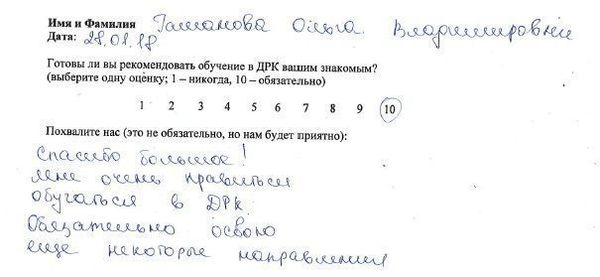 Имя и Фамилия Гашанова Ольга Владимировна
Дата: 28.01.18
Готовы ли вы рекомендовать обучение в ДРК вашим знакомым?
(выберите одну оценку; 1 – никогда, 10 – обязательно)
1 2 3 4 5 6 7 8 9 10
Похвалите нас (это не обязательно, но нам будет приятно):
Спасибо большое!
мне очень нравиться
обучаться в ДРК.
Обязательно освою
еще некоторые направления